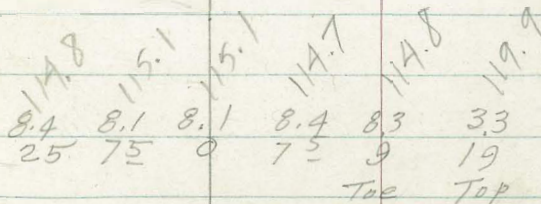 114.8 115.1 115.1 114.7 114.8 119.9
8.4 8.1 8.1 8.4 8.3 3.3
25 75 0 75 9 19
Toe Top